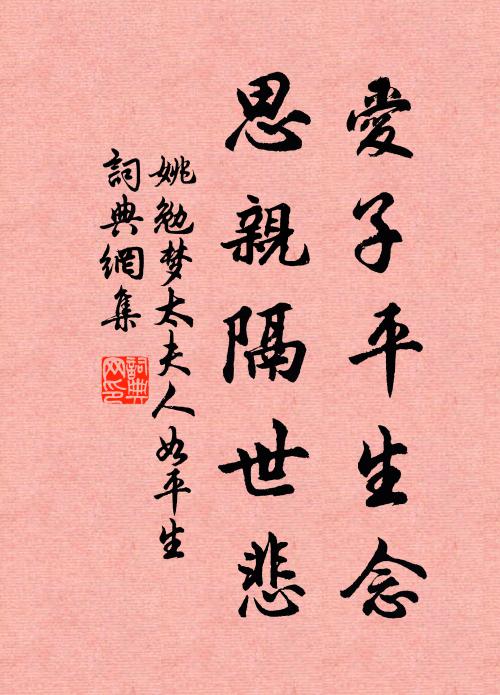 愛子平生念
思親隔世悲
姚勉梦太夫人如平生
詞典網集
詞典
网印